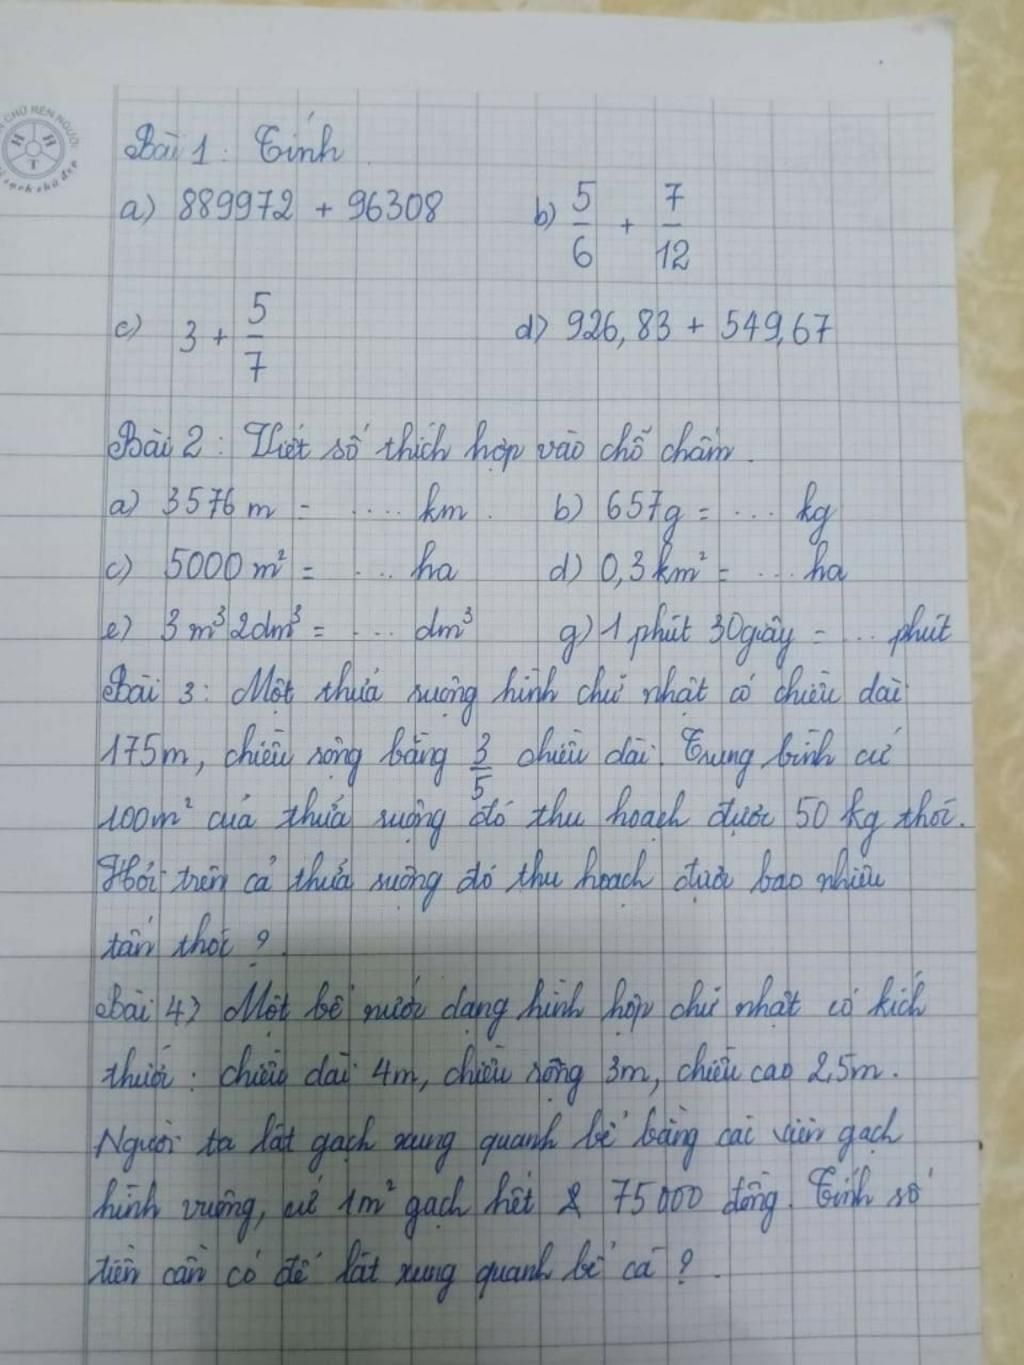 CHỮ RÈN NGƯỜI
H H T
sạch chữ đẹp
Bài 1: Tính
a) 889972 + 96308 b) 5/6 + 7/12
c) 3 + 5/7 d) 926,83 + 549,67
Bài 2: Viết số thích hợp vào chỗ chấm.
a) 3576 m = .... km. b) 657g = ... kg
c) 5000 m² = .... ha d) 0,3 km² = ... ha
e) 3 m³ 2dm³ = .... dm³ g) 1 phút 30giây = ... phút
Bài 3: Một thửa ruộng hình chữ nhật có chiều dài
175m, chiều rộng bằng 3/5 chiều dài. Trung bình cứ
100m² của thửa ruộng đó thu hoạch được 50 kg thóc.
Hỏi trên cả thửa ruộng đó thu hoạch được bao nhiêu
tấn thóc ?
Bài 4) Một bể nước dạng hình hộp chữ nhật có kích
thước: chiều dài 4m, chiều rộng 3m, chiều cao 2,5m.
Người ta lát gạch xung quanh bể bằng các viên gạch
hình vuông, cứ 1m² gạch hết 75000 đồng. Tính số
tiền cần có để lát xung quanh bể cá ?